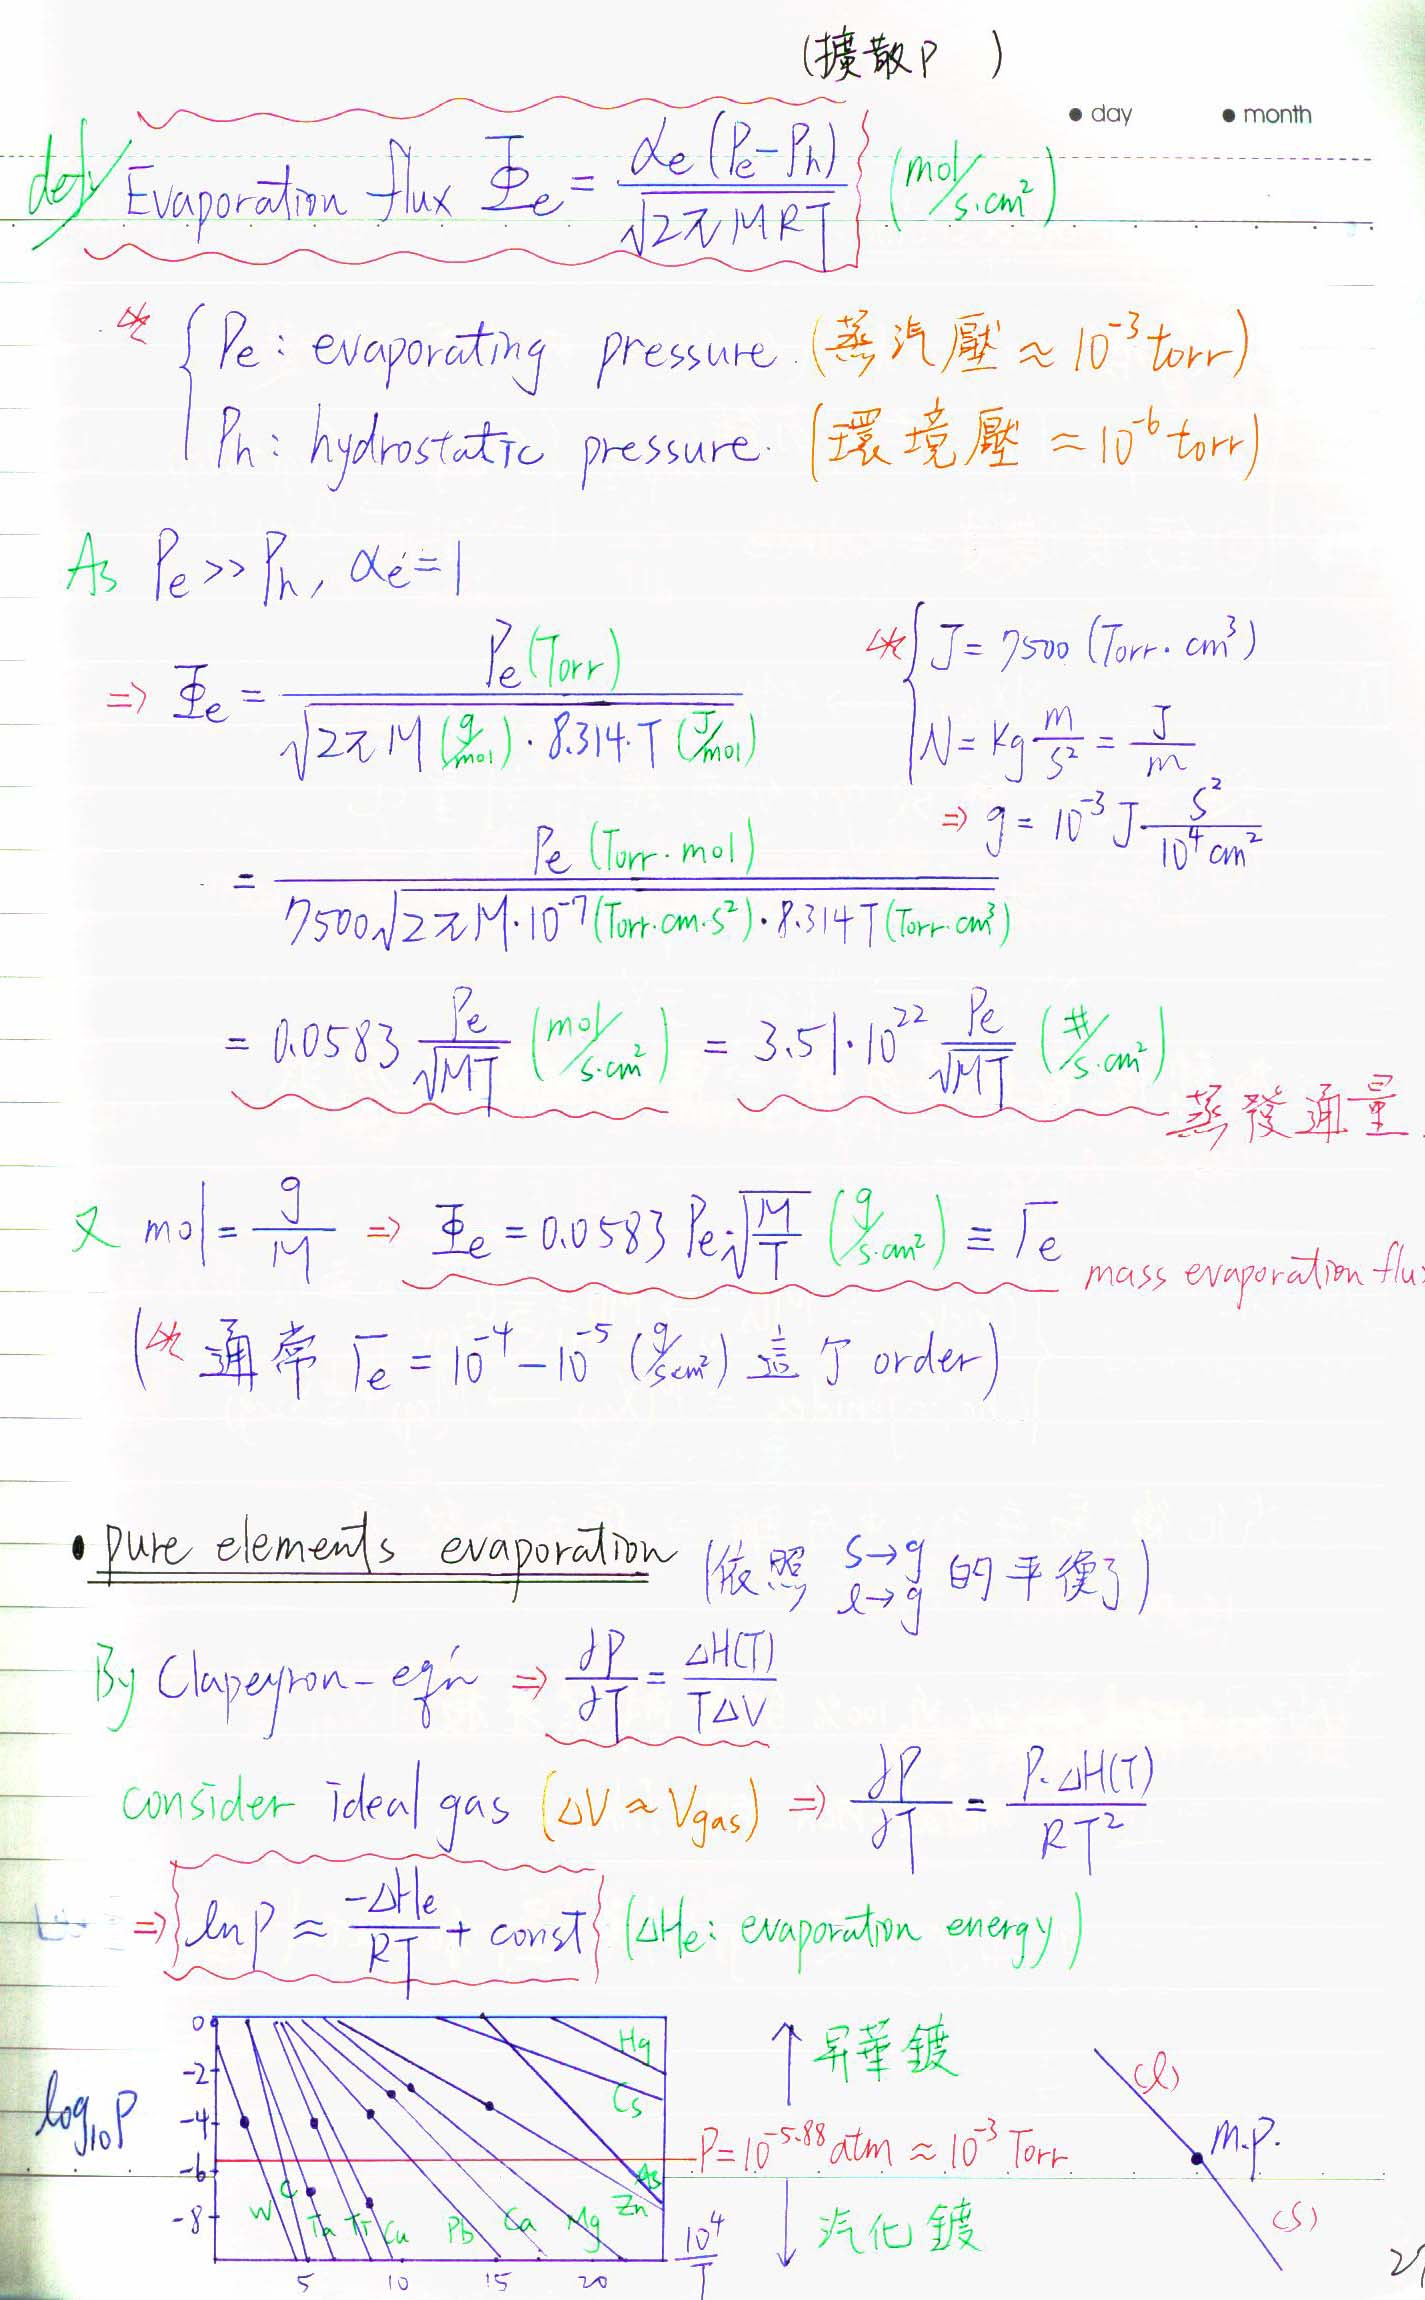 (擴散P )
• day • month
def Evaporation flux Φe = αe (Pe-Ph) / √2πMRT (mol/s·cm²)
※ { Pe: evaporating pressure. (蒸汽壓 ≈ 10⁻³ torr)
Ph: hydrostatic pressure. (環境壓 ≈ 10⁻⁶ torr)
As Pe >> Ph, αe = 1
⇒ Φe = Pe (Torr) / √2πM (g/mol) · 8.314·T (J/mol)
※ { J = 7500 (Torr·cm³)
N = Kg m/s² = J/m
⇒ g = 10⁻³ J· s²/10⁴cm²
= Pe (Torr·mol) / 7500√2πM·10⁻⁷ (Torr·cm·s²) · 8.314T (Torr·cm³)
= 0.0583 Pe/√MT (mol/s·cm²) = 3.51·10²² Pe/√MT (#/s·cm²)
蒸發通量
又 mol = g/M ⇒ Φe = 0.0583 Pe·√M/T (g/s·cm²) ≡ Γe
mass evaporation flu
(※ 通常 Γe = 10⁻⁴ – 10⁻⁵ (g/s·cm²) 這个 order)
• pure elements evaporation (依照 s→g l→g 的平衡)
By Clapeyron-eq'n ⇒ ∂P/∂T = ΔH(T)/TΔV
consider ideal gas (ΔV ≈ Vgas) ⇒ ∂P/∂T = P·ΔH(T)/RT²
⇒ lnP ≈ -ΔHe/RT + const (ΔHe: evaporation energy)
log₁₀P
0
-2
-4
-6
-8
Hg
Cs
As
Zn
W C Ta Ti Cu Pb Ca Mg
5 10 15 20
10⁴/T
↑ 昇華鍍
P = 10⁻⁵·⁸⁸ atm ≈ 10⁻³ Torr
↓ 汽化鍍
(l)
m.p.
(s)